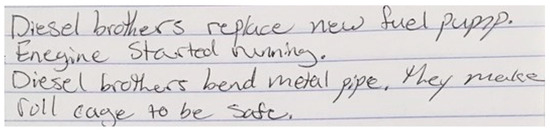 Diesel brothers replace new fuel pupp.
Enegine Started running.
Diesel brothers bend metal pipe. they make
roll cage to be safe.